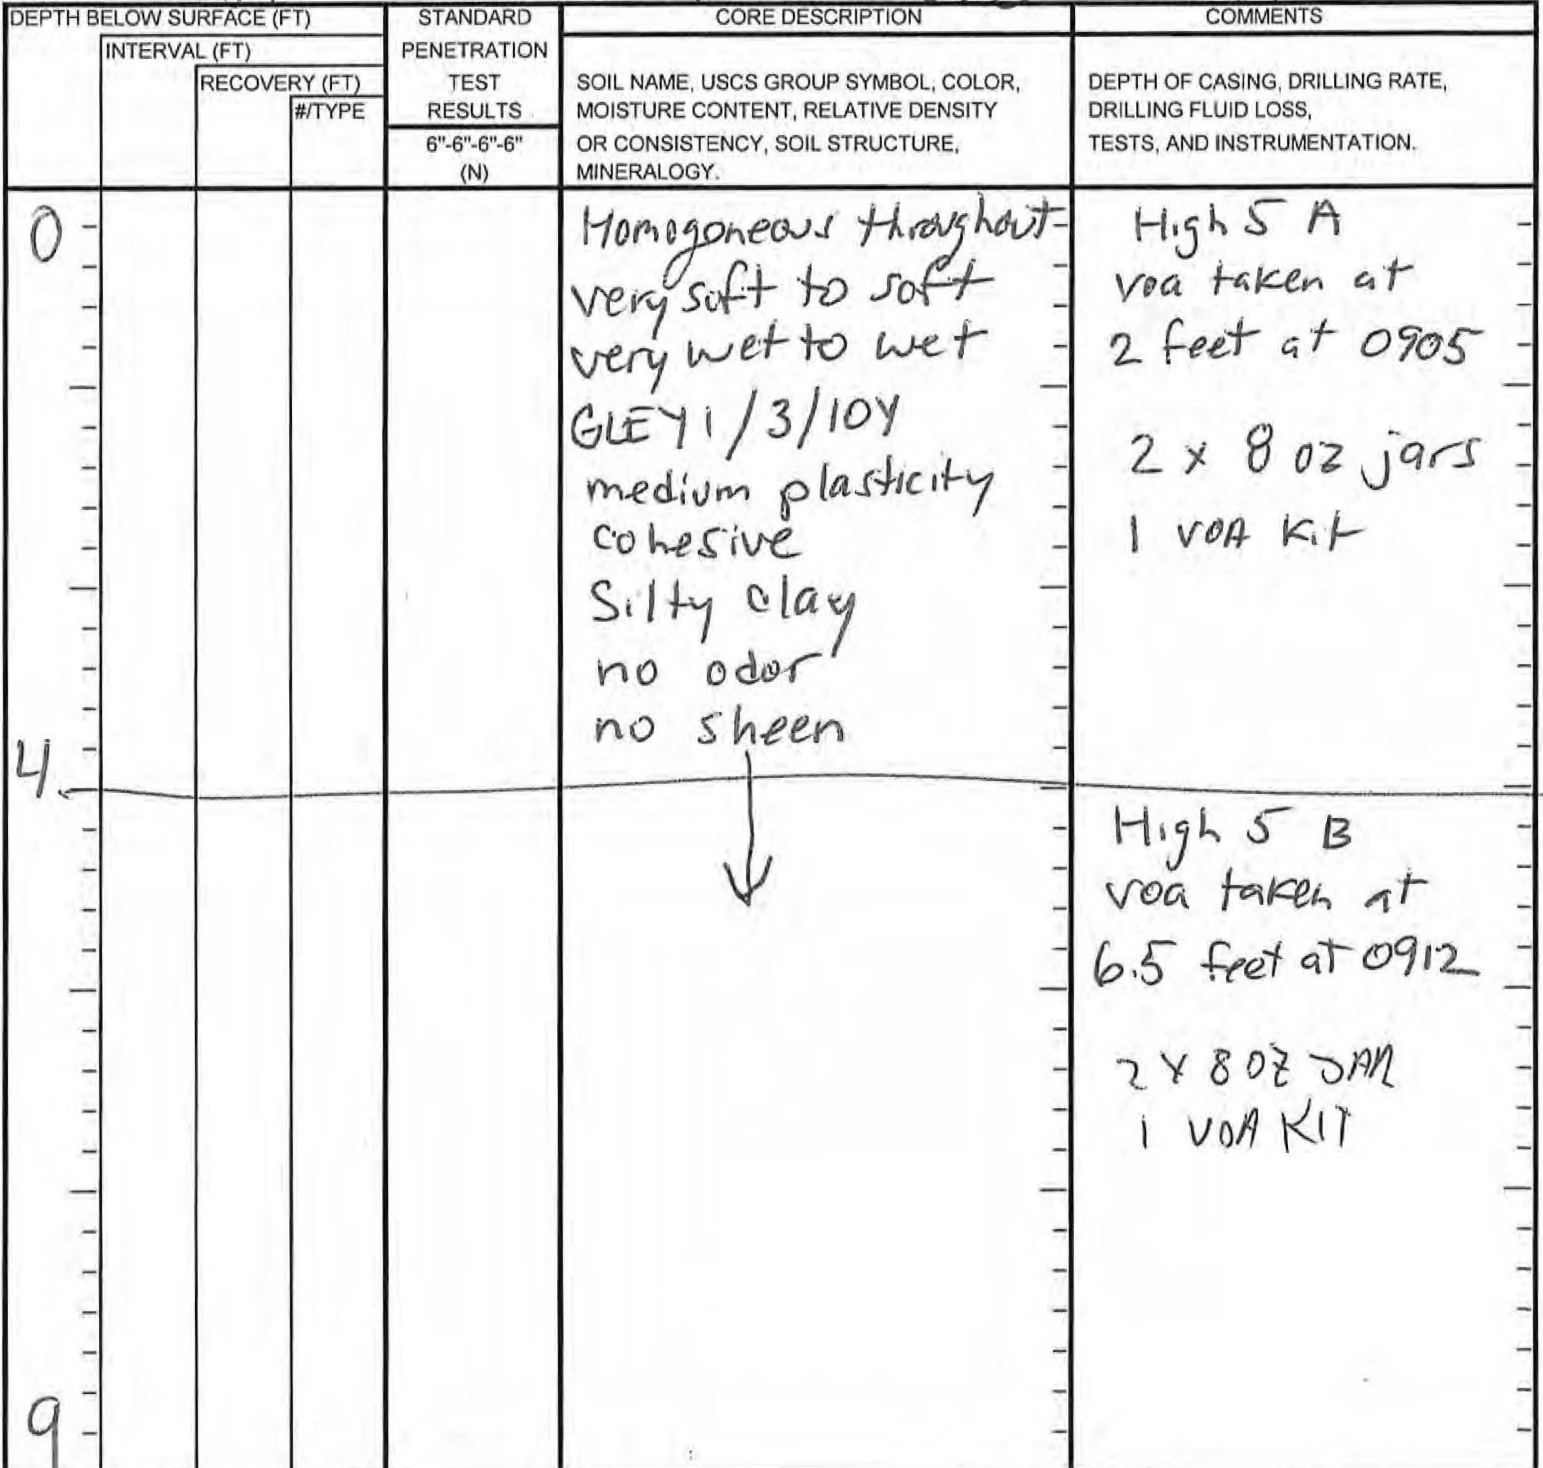 DEPTH BELOW SURFACE (FT)
INTERVAL (FT)
RECOVERY (FT)
#/TYPE
STANDARD
PENETRATION
TEST
RESULTS
6"-6"-6"-6"
(N)
CORE DESCRIPTION
SOIL NAME, USCS GROUP SYMBOL, COLOR,
MOISTURE CONTENT, RELATIVE DENSITY
OR CONSISTENCY, SOIL STRUCTURE,
MINERALOGY.
COMMENTS
DEPTH OF CASING, DRILLING RATE,
DRILLING FLUID LOSS,
TESTS, AND INSTRUMENTATION.
0
Homogoneous throughout
very soft to soft
very wet to wet
GLEY1/3/10Y
medium plasticity
cohesive
Silty clay
no odor
no sheen
High 5 A
voa taken at
2 feet at 0905
2 x 8 oz jars
1 VOA Kit
4
High 5 B
voa taken at
6.5 feet at 0912
2 x 8 OZ JAR
1 VOA KIT
9